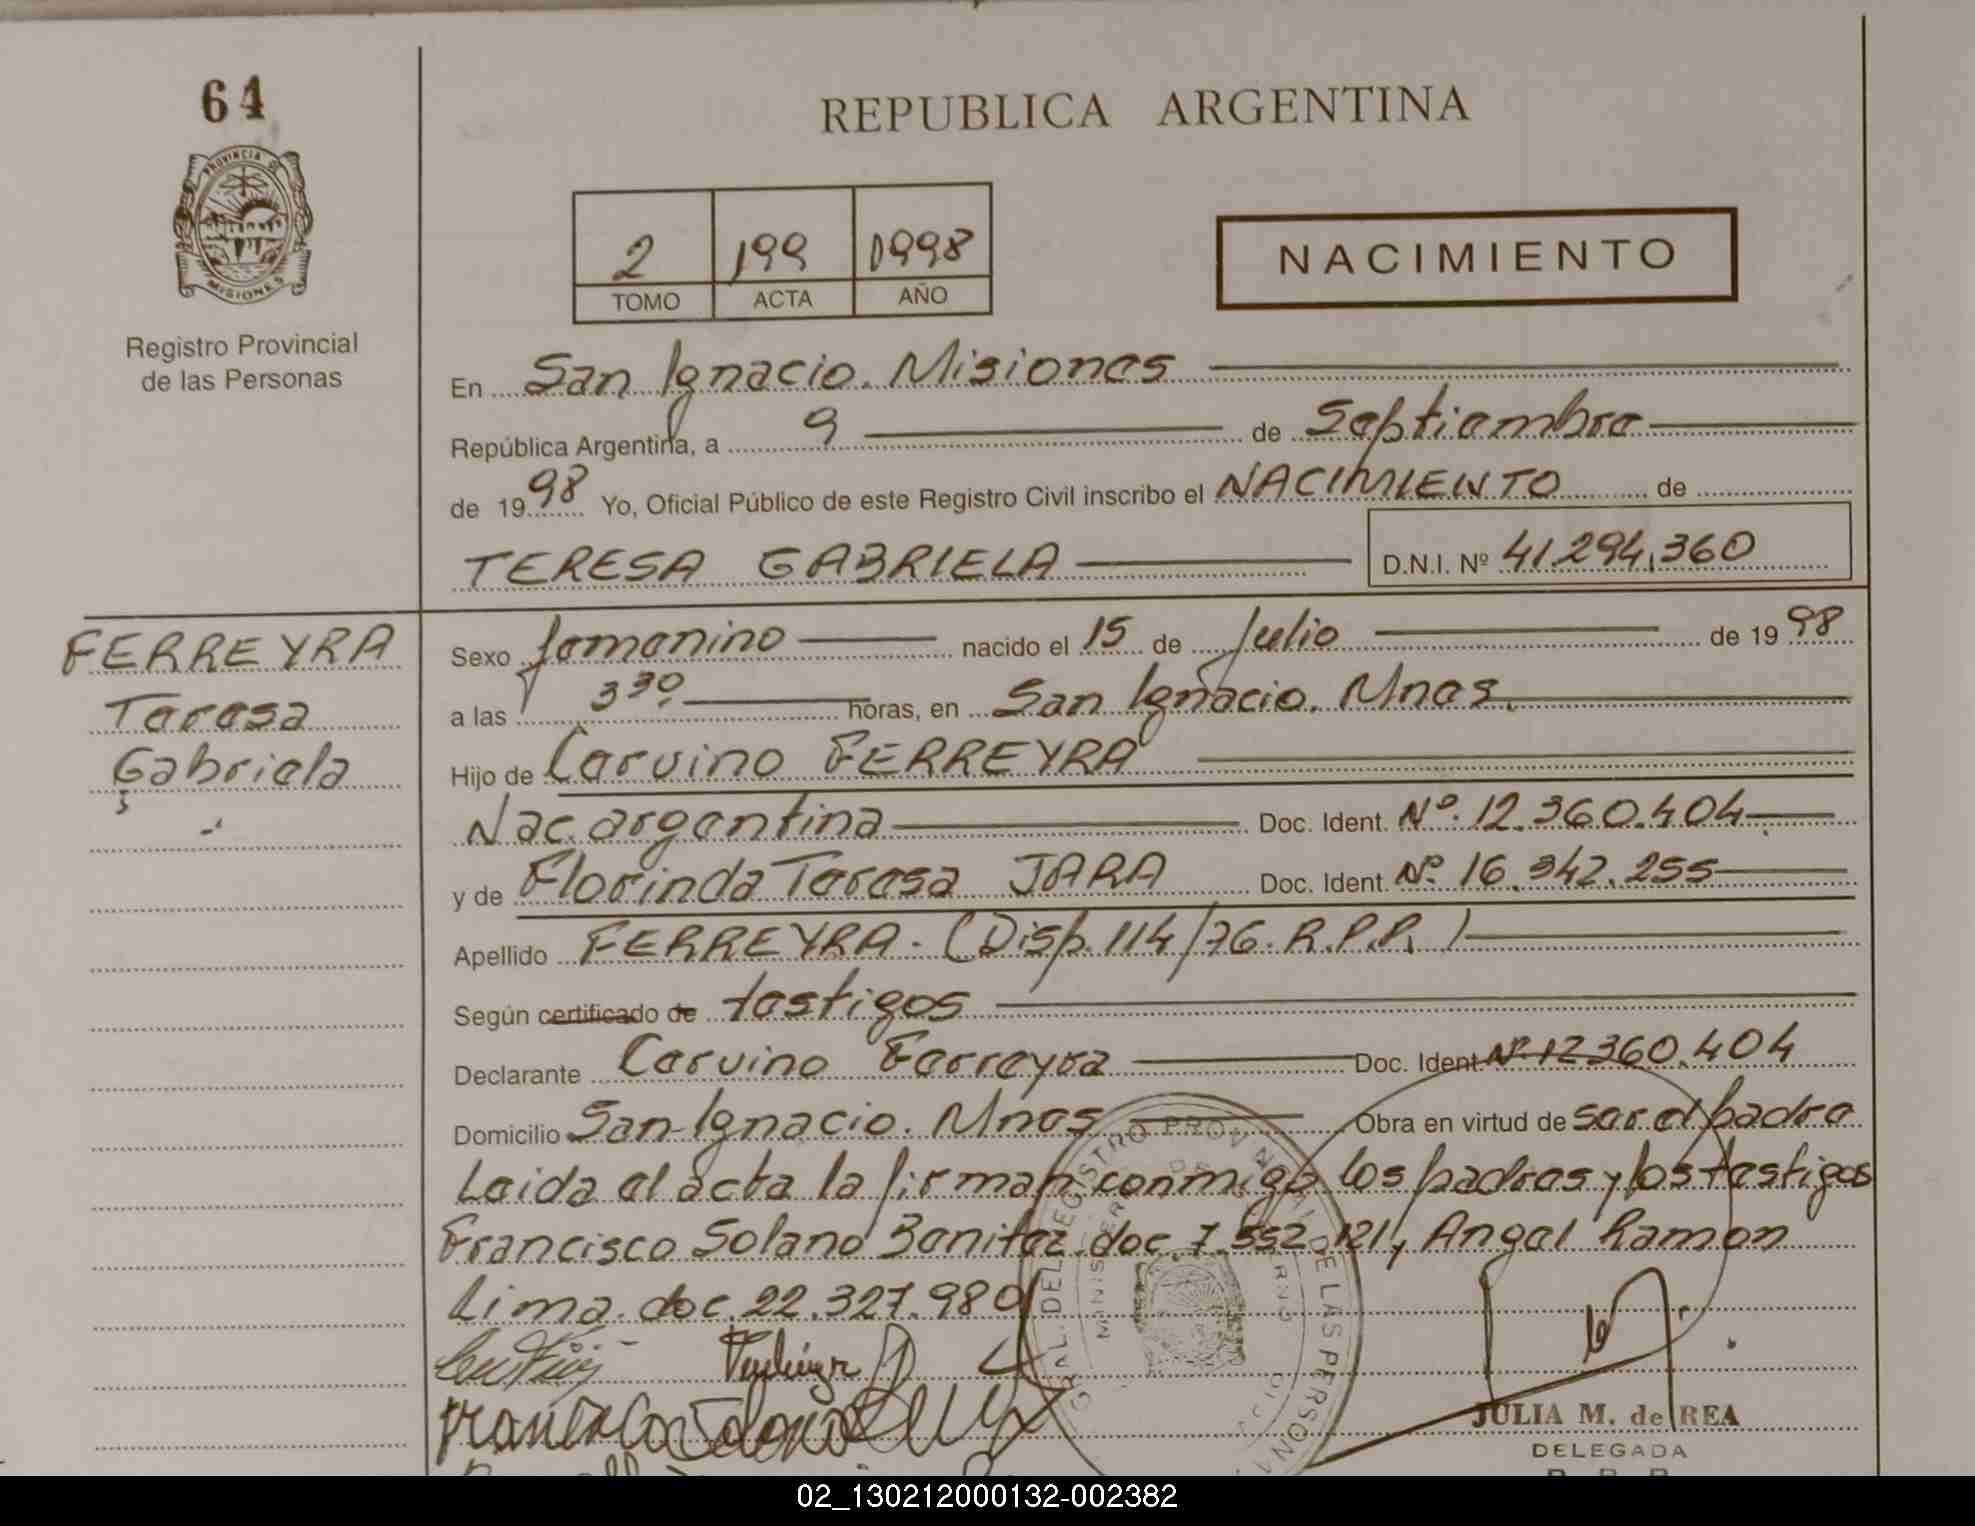 64
REPUBLICA ARGENTINA
PROVINCIA D
MISIONES
2 199 1998
TOMO ACTA AÑO
NACIMIENTO
Registro Provincial
de las Personas
En San Ignacio. Misiones
República Argentina, a 9 de Septiembre
de 1998 Yo, Oficial Público de este Registro Civil inscribo el NACIMIENTO de
TERESA GABRIELA D.N.I. Nº 41.294.360
FERREYRA
Teresa
Gabriela
Sexo femenino nacido el 15 de Julio de 1998
a las 3 30 horas, en San Ignacio. Mnes.
Hijo de Corvino FERREYRA
Nac. argentina Doc. Ident. Nº. 12.360.404
y de Florinda Teresa JARA Doc. Ident. Nº. 16.342.255
Apellido FERREYRA. (Disp. 114/76. R.P.P.)
Según certificado de testigos
Declarante Corvino Ferreyra Doc. Ident. Nº 12360.404
Domicilio San Ignacio. Mnes Obra en virtud de ser el padre
Leida el acta la firman conmigo los padres y los testigos
Francisco Solano Benitez doc. 7.552.121, Angel Ramon
Lima. doc. 22.327.980
JULIA M. de REA
DELEGADA
02_130212000132-002382